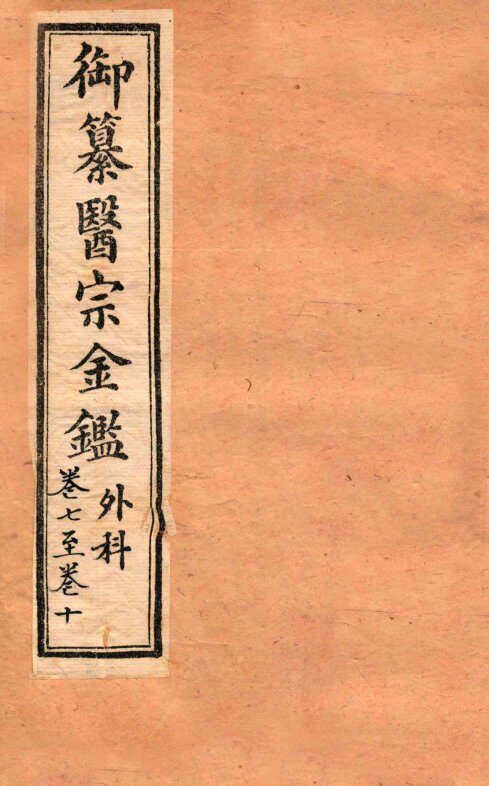 御纂醫宗金鑑
外科
卷七至卷十